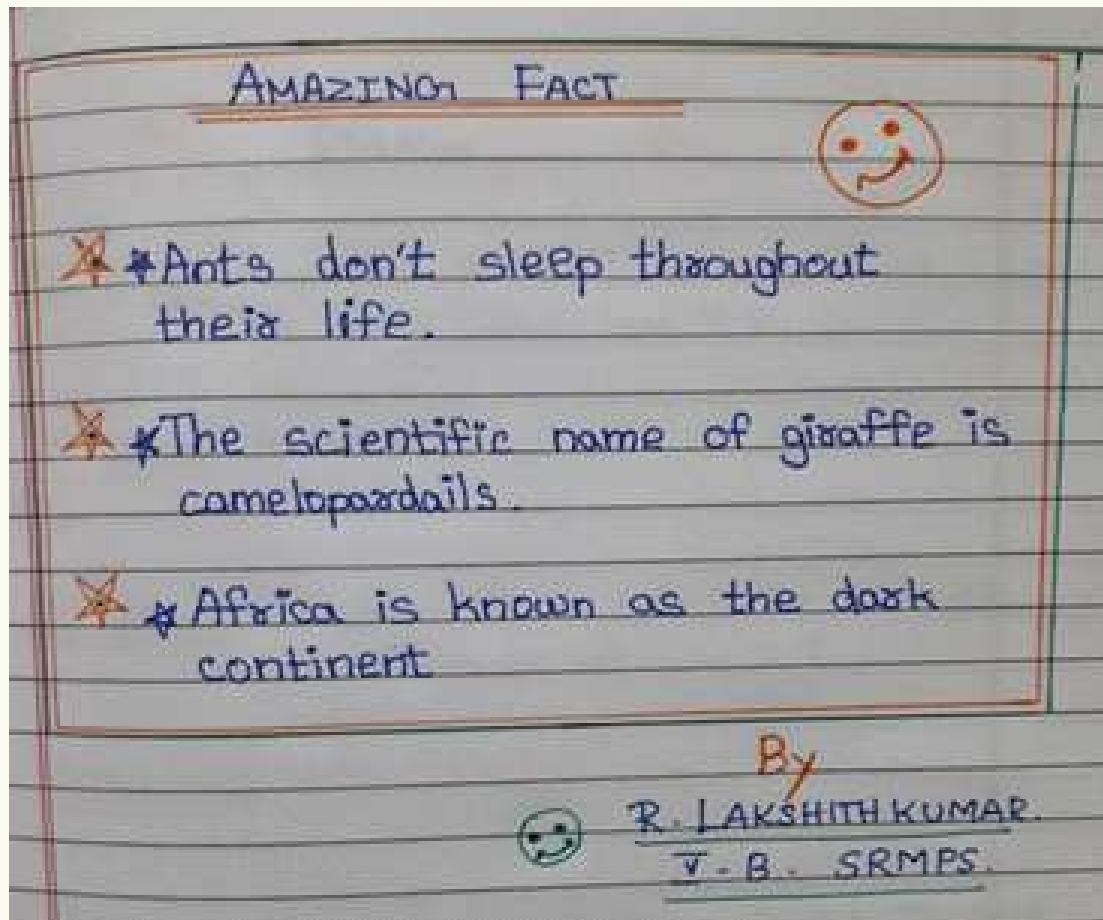 AMAZING FACT
*Ants don't sleep throughout
their life.
*The scientific name of giraffe is
camelopardails.
* Africa is known as the dark
continent
By
R. LAKSHITH KUMAR.
V - B. SRMPS.